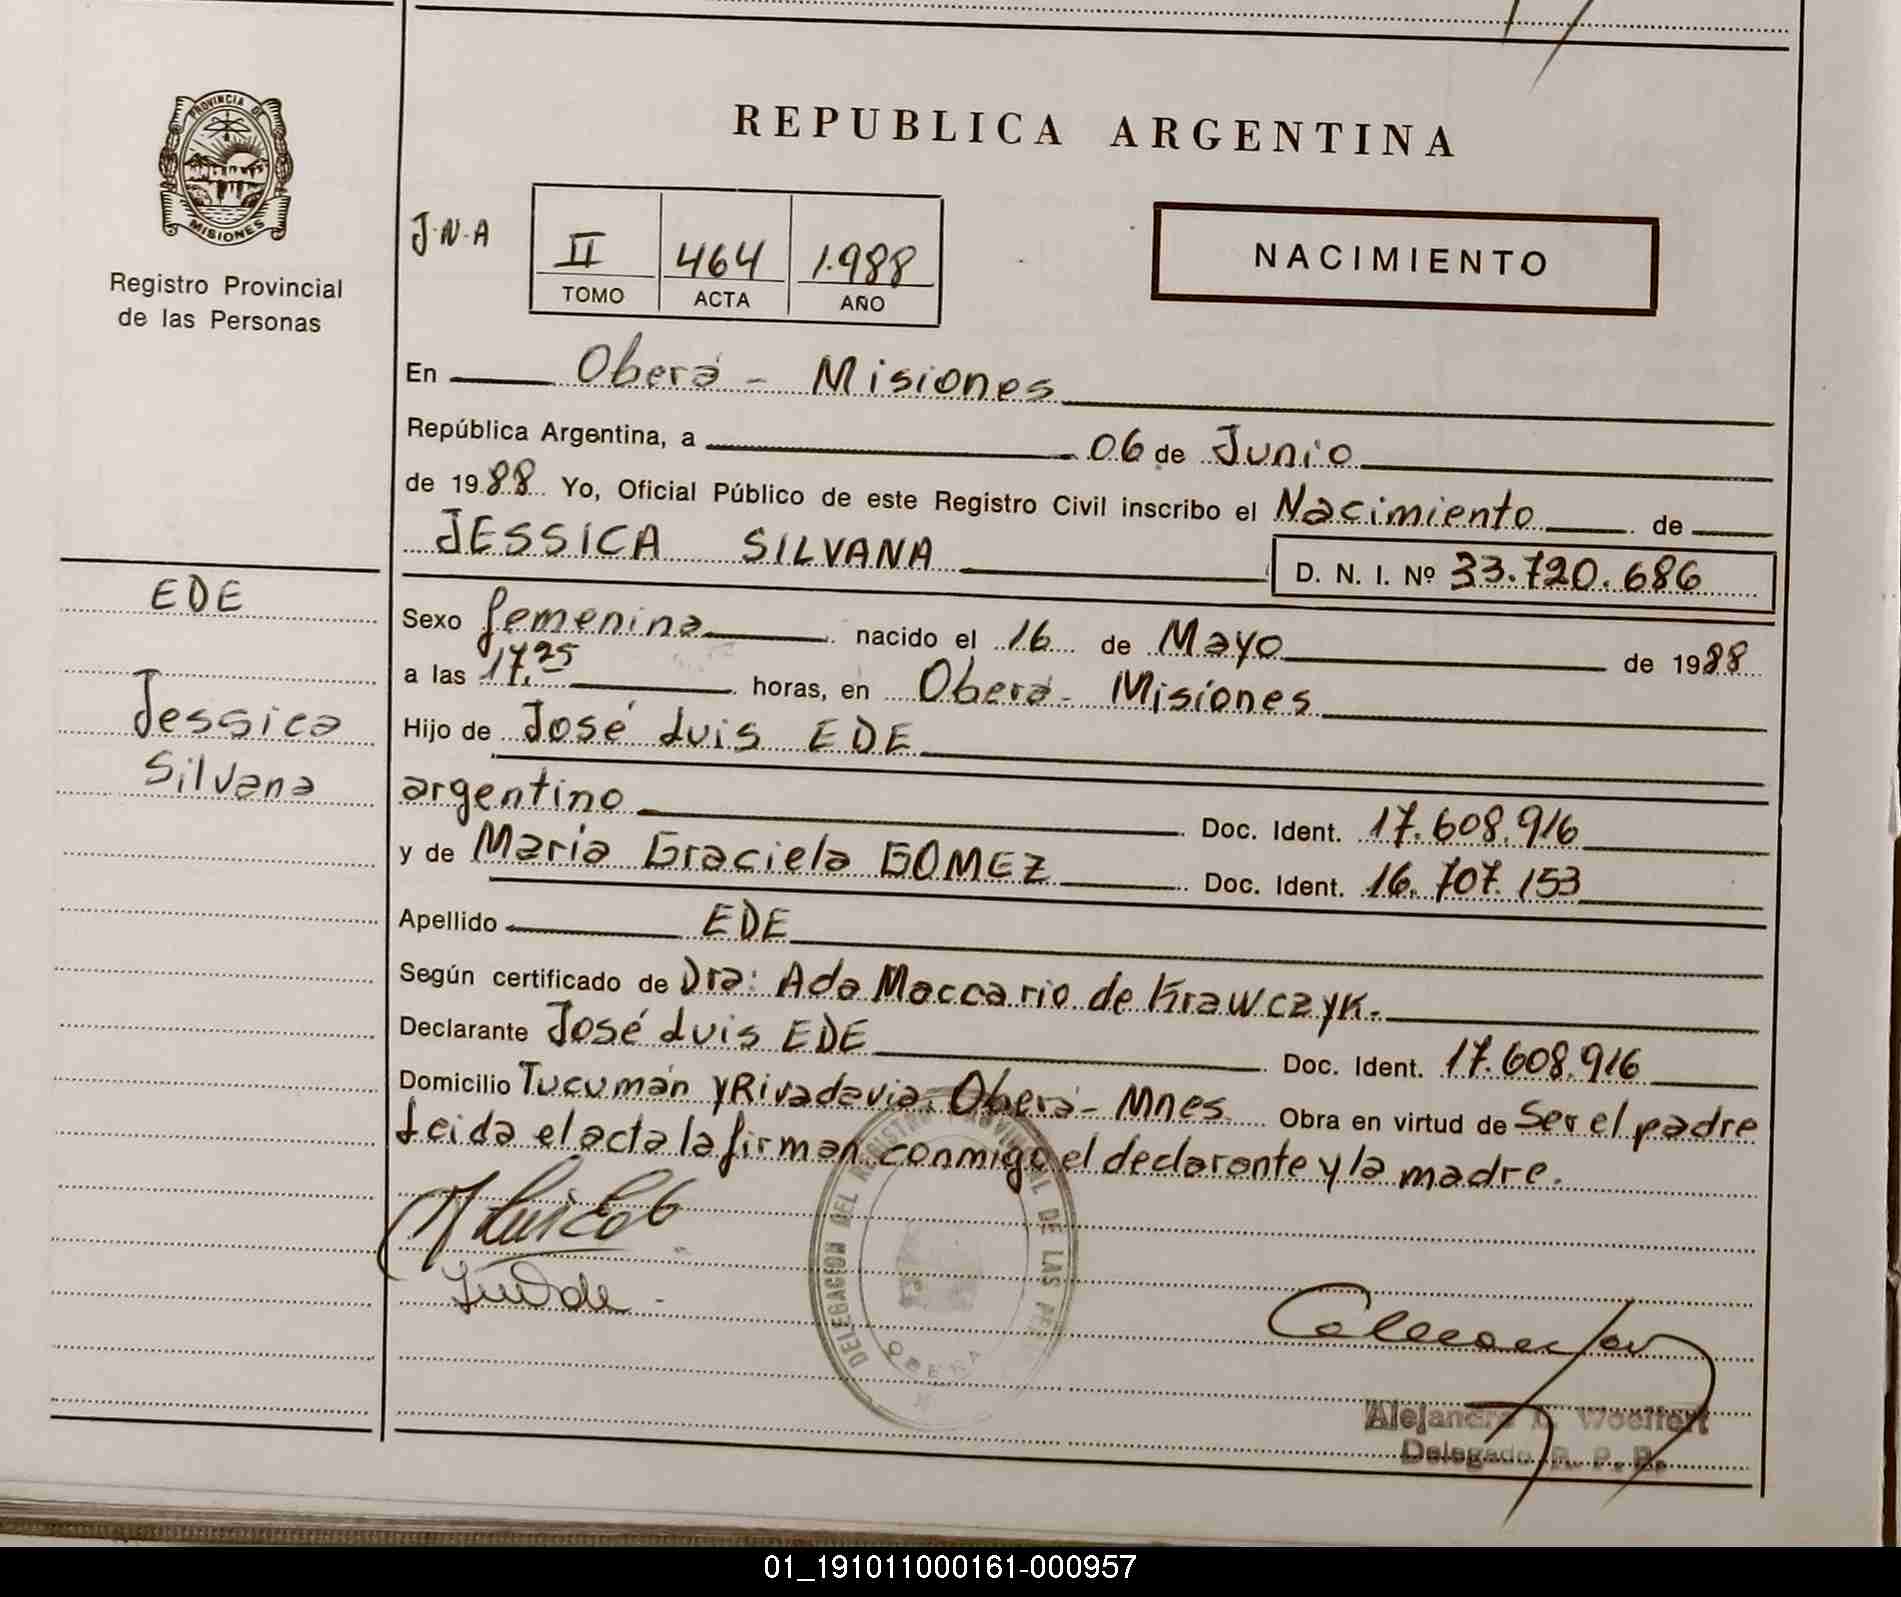 PROVINCIA DE
MISIONES
Registro Provincial
de las Personas
REPUBLICA ARGENTINA
J.N.A
II 464 1.988
TOMO ACTA AÑO
NACIMIENTO
En Oberá - Misiones
República Argentina, a 06 de Junio
de 1988 Yo, Oficial Público de este Registro Civil inscribo el Nacimiento de
JESSICA SILVANA D. N. I. Nº 33.720.686
EDE
Jessica
Silvana
Sexo femenina nacido el 16 de Mayo de 1988
a las 17,25 horas, en Oberá - Misiones
Hijo de José Luis EDE
argentino Doc. Ident. 17.608.916
y de María Graciela GOMEZ Doc. Ident. 16.707.153
Apellido EDE
Según certificado de Dra: Ada Maccario de Krawczyk.
Declarante José Luis EDE Doc. Ident. 17.608.916
Domicilio Tucumán y Rivadavia. Oberá - Mnes Obra en virtud de Ser el padre
Leida el acta la firman conmigo el declarante y la madre.
DELEGACION DEL REGISTRO PROVINCIAL DE LAS PER
OBERA
Delegado R. P. P.
01_191011000161-000957